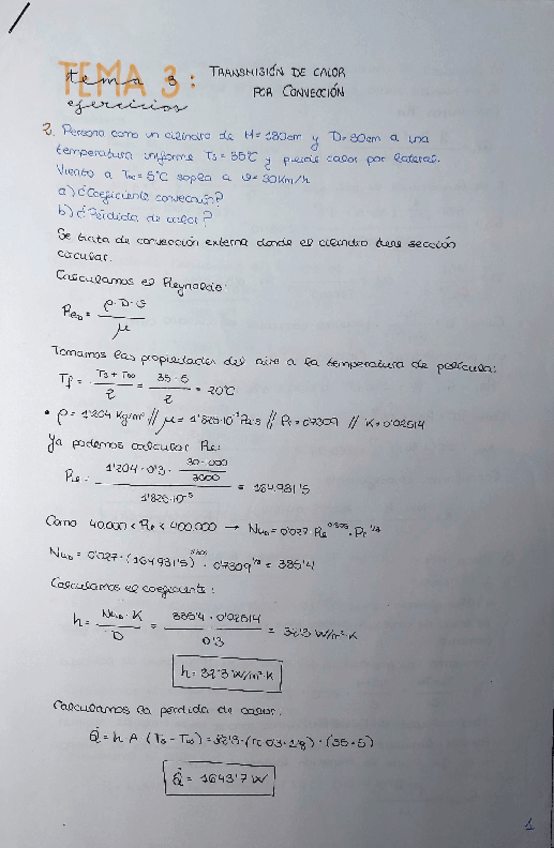 TEMA 3: TRANSMISIÓN DE CALOR
tema 3 POR CONVECCIÓN
ejercicios
2. Persona como un cilindro de H=180cm y D=30cm a una
temperatura uniforme Ts=35°C y pierde calor por laterales.
Viento a T∞=5°C sopla a v=30Km/h
a) ¿Coeficiente convección?
b) ¿Pérdida de calor?
Se trata de convección externa donde el cilindro tiene sección
circular.
Calculamos el Reynolds:
Re_D = ρ·D·v / μ
Tomamos las propiedades del aire a la temperatura de película:
Tf = (Ts + T∞) / 2 = (35 + 5) / 2 = 20°C
• ρ = 1'204 Kg/m³ // μ = 1'825·10⁻⁵ Pa·s // Pr = 0'7309 // K = 0'02514
Ya podemos calcular Re:
Re = (1'204 · 0'3 · 30·000/3600) / 1'825·10⁻⁵ = 164.931'5
Como 40.000 < Re < 400.000 → Nu_D = 0'027 · Re^0'805 · Pr^1/3
Nu_D = 0'027 · (164931'5)^0'805 · 0'7309^1/3 = 385'4
Calculamos el coeficiente:
h = Nu_D · K / D = 385'4 · 0'02514 / 0'3 = 32'3 W/m²·K
h = 32'3 W/m²·K
Calculamos la pérdida de calor:
Q̇ = h A (Ts - T∞) = 32'3 · (π · 0'3 · 1'8) · (35 - 5)
Q̇ = 1643'7 W
1